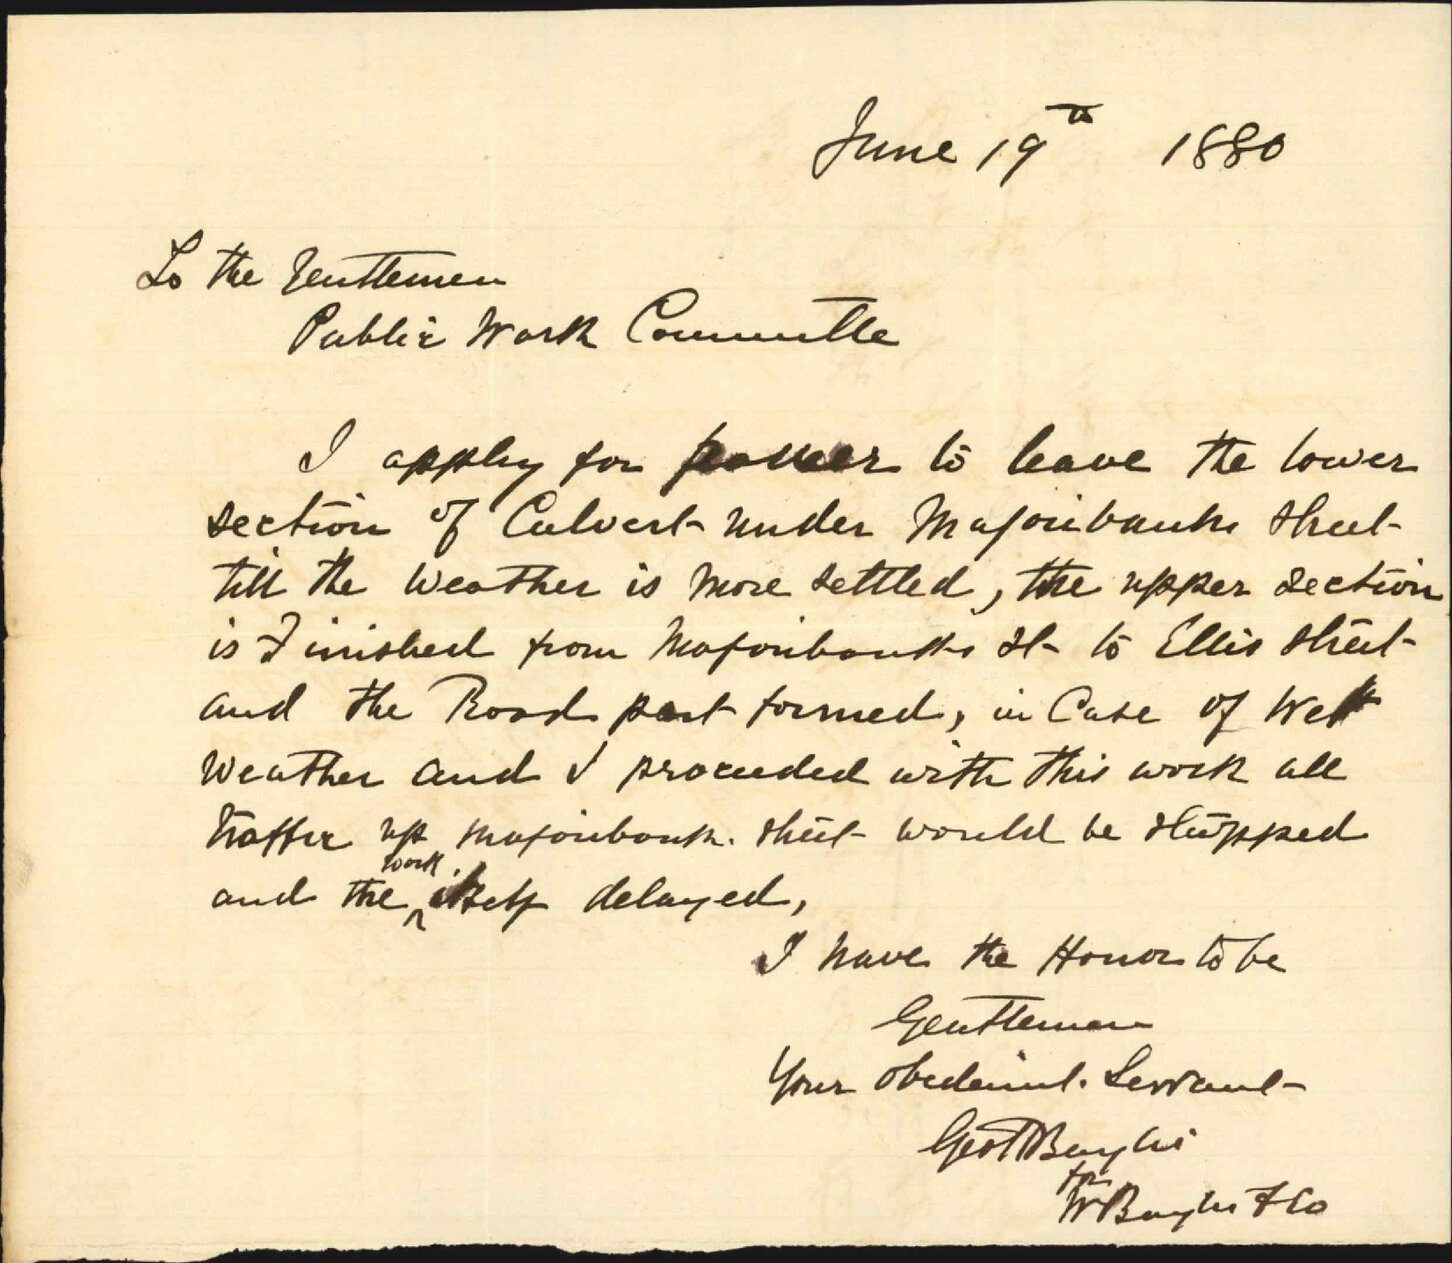 June 19th 1880
To the Gentlemen
Public Work Committe
I apply for power to leave the lower
section of Culvert under Majoribanks Street
till the Weather is More settled, the upper section
is Finished from Majoribanks St to Ellis Street
and the Road part formed, in Case of Wett
Weather and I proceeded with this work all
traffic up Majoribank. Street would be stopped
and the work itself delayed,
I have the Honor to be
Gentlemen
Your obedient. Servant
for
& Co